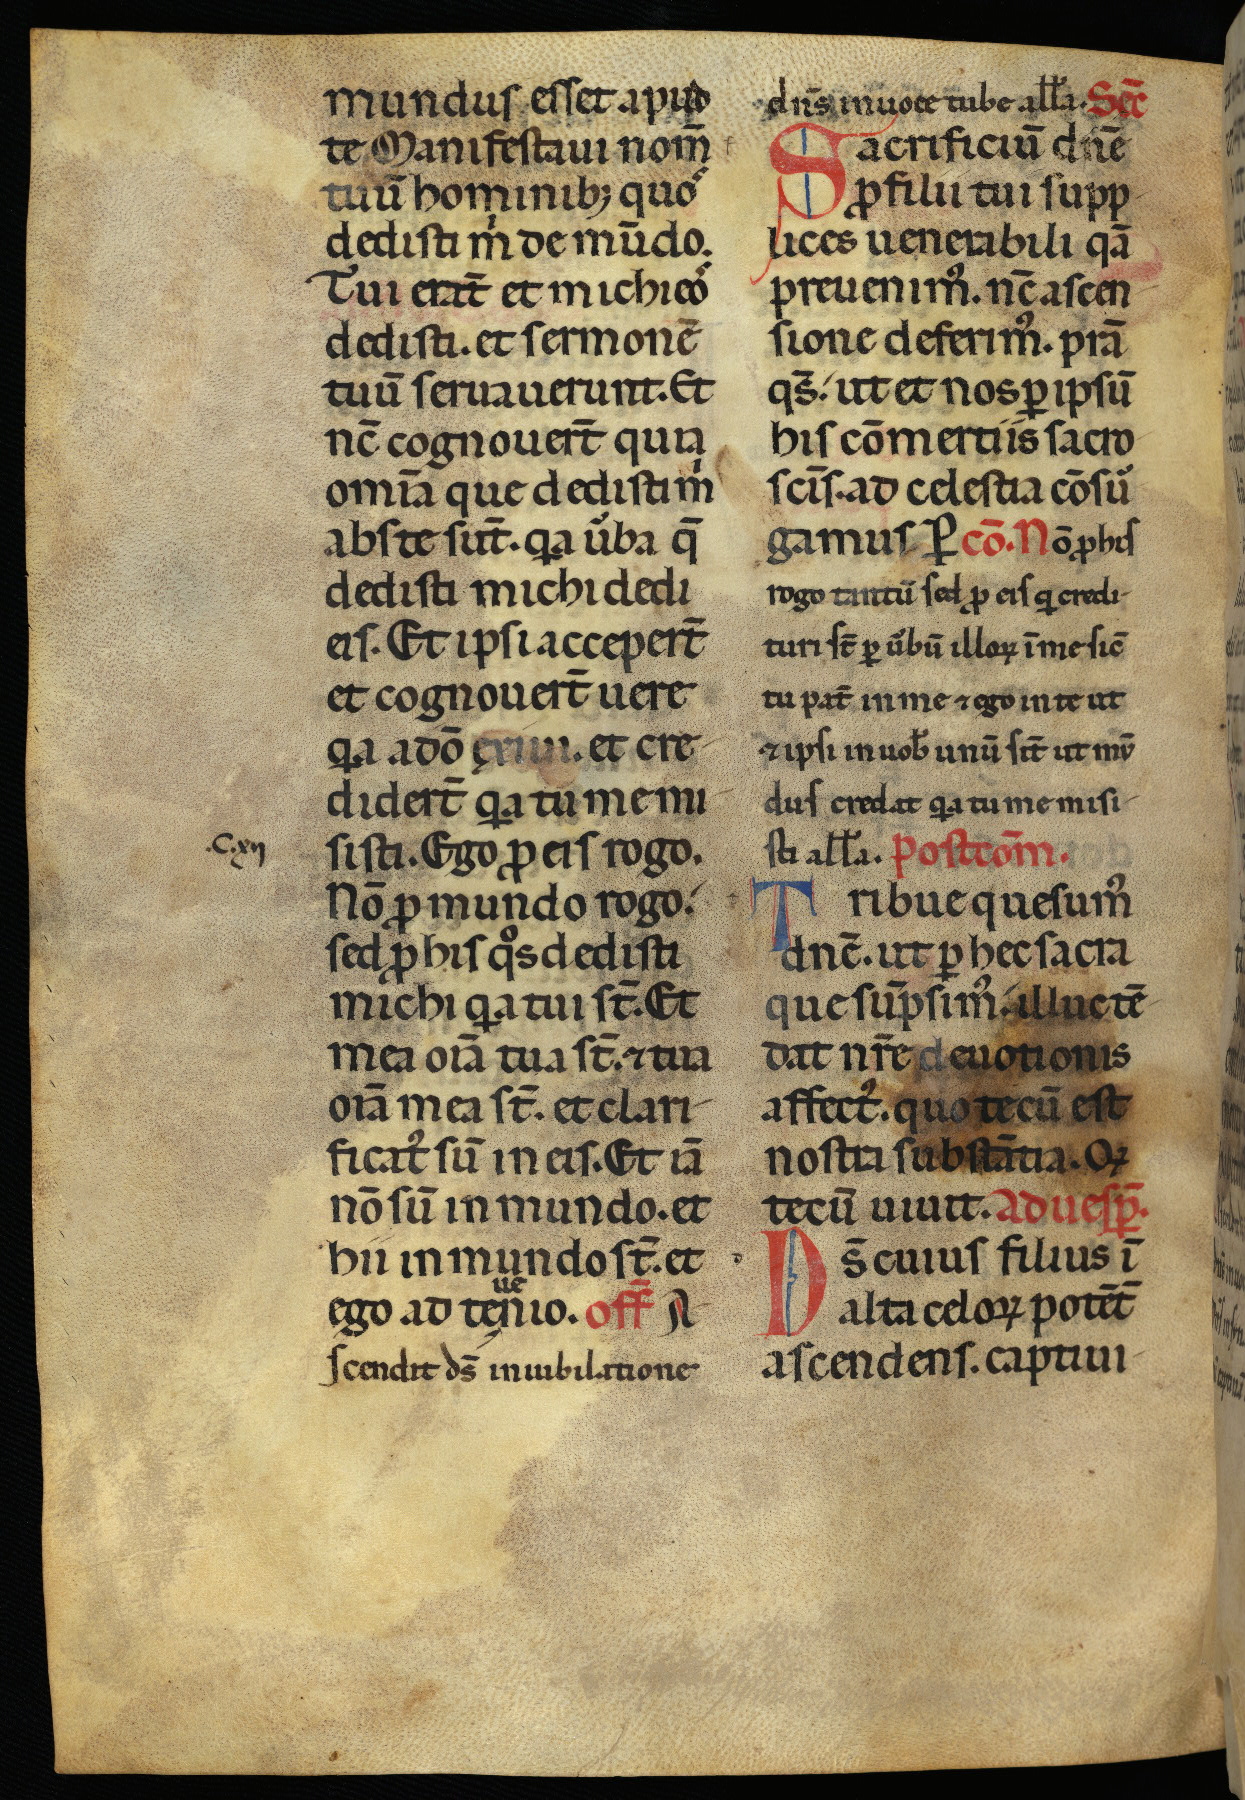 mundus esset apud
te Manifestaui nom̄
tuū hominib; quos
dedisti m̍ de mūdo.
Tui erāt et michi eos
dedisti. et sermonē
tuū seruauerunt. Et
nc̄ cognouert̄ quia
om̄ia que dedisti m̍
abs te sūt. qa uͥba q̄
dedisti michi dedi
eis. Et ipsi accepert̄
et cognouert̄ uere
qa a dō exiui. et cre
didert̄ qa tu me mi
.C.xij
sisti. Ego ꝓ eis rogo.
Nō ꝓ mundo rogo.
sed ꝓ his qͦs dedisti
michi qa tui st̄. Et
mea oīa tua st̄. ⁊ tua
oīa mea st̄. et clari
ficatꝰ sū in eis. Et iā
nō sū in mundo. et
hii in mundo st̄. et
ue
ego ad te nio. off̄ A
scendit ds̄ in iubilatione
dn̄s in uoce tube all̄a. Sec̄
Sacrificiū dn̄e
ꝓ filii tui supp
lices uenerabili qā
preuenimꝰ. nc̄ ascen
sione deferimꝰ. prā
qs̄. ut et nos ꝑ ipsū
his cōmertiis sacro
scīs. ad celestia cōsu
gamus P̄ cō. Nō ꝓ his
rogo tantū sed ꝓ eis qi credi
turi st̄ ꝑ uͥbū illoꝝ ī me sic̄
tu pat̄ in me ⁊ ego in te ut
⁊ ipsi in uob̄ unū sīt ut mū
dus credat qa tu me misi
sti all̄a. Postcōm.
Tribue quesumꝰ
dn̄e. ut ꝑ hec sacra
que sūpsimꝰ. illuc tē
dat nr̄e deuotionis
affectꝰ. quo tecū est
nostra substātia. Qꝝ
tecū uiuit. Ad uesp̄.
Ds̄ cuius filius ī
alta celoꝝ potēt̄
ascendens. captiui